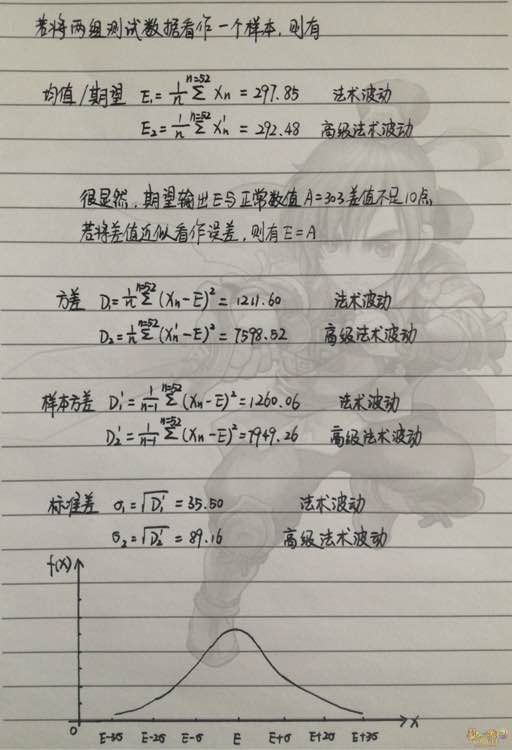 若将两组测试数据看作一个样本,则有
均值/期望 E₁=1/n Σⁿ⁼⁵² Xn = 297.85 法术波动
E₂=1/n Σⁿ⁼⁵² Xn' = 292.48 高级法术波动
很显然,期望输出E与正常数值A=303差值不足10点
若将差值近似看作误差,则有E=A
方差 D₁=1/n Σⁿ⁼⁵² (Xn-E)² = 1211.60 法术波动
D₂=1/n Σⁿ⁼⁵² (Xn'-E)² = 7598.52 高级法术波动
样本方差 D₁'=1/(n-1) Σⁿ⁼⁵² (Xn-E)² = 1260.06 法术波动
D₂'=1/(n-1) Σⁿ⁼⁵² (Xn-E)² = 7949.26 高级法术波动
标准差 σ₁=√D₁' = 35.50 法术波动
σ₂=√D₂' = 89.16 高级法术波动
f(x)
0 E-3σ E-2σ E-σ E E+σ E+2σ E+3σ X